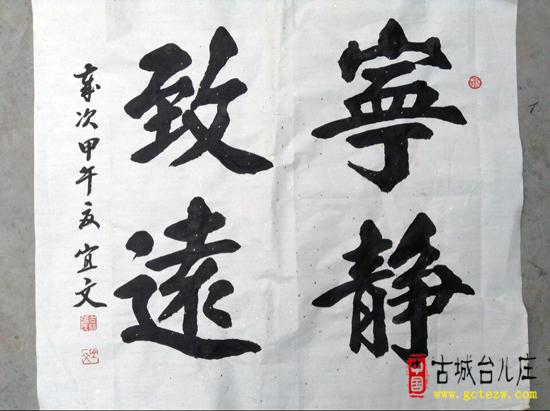 寧静
致遠
歲次甲午夏宜文
中国
古城台儿庄
www.gctezw.com